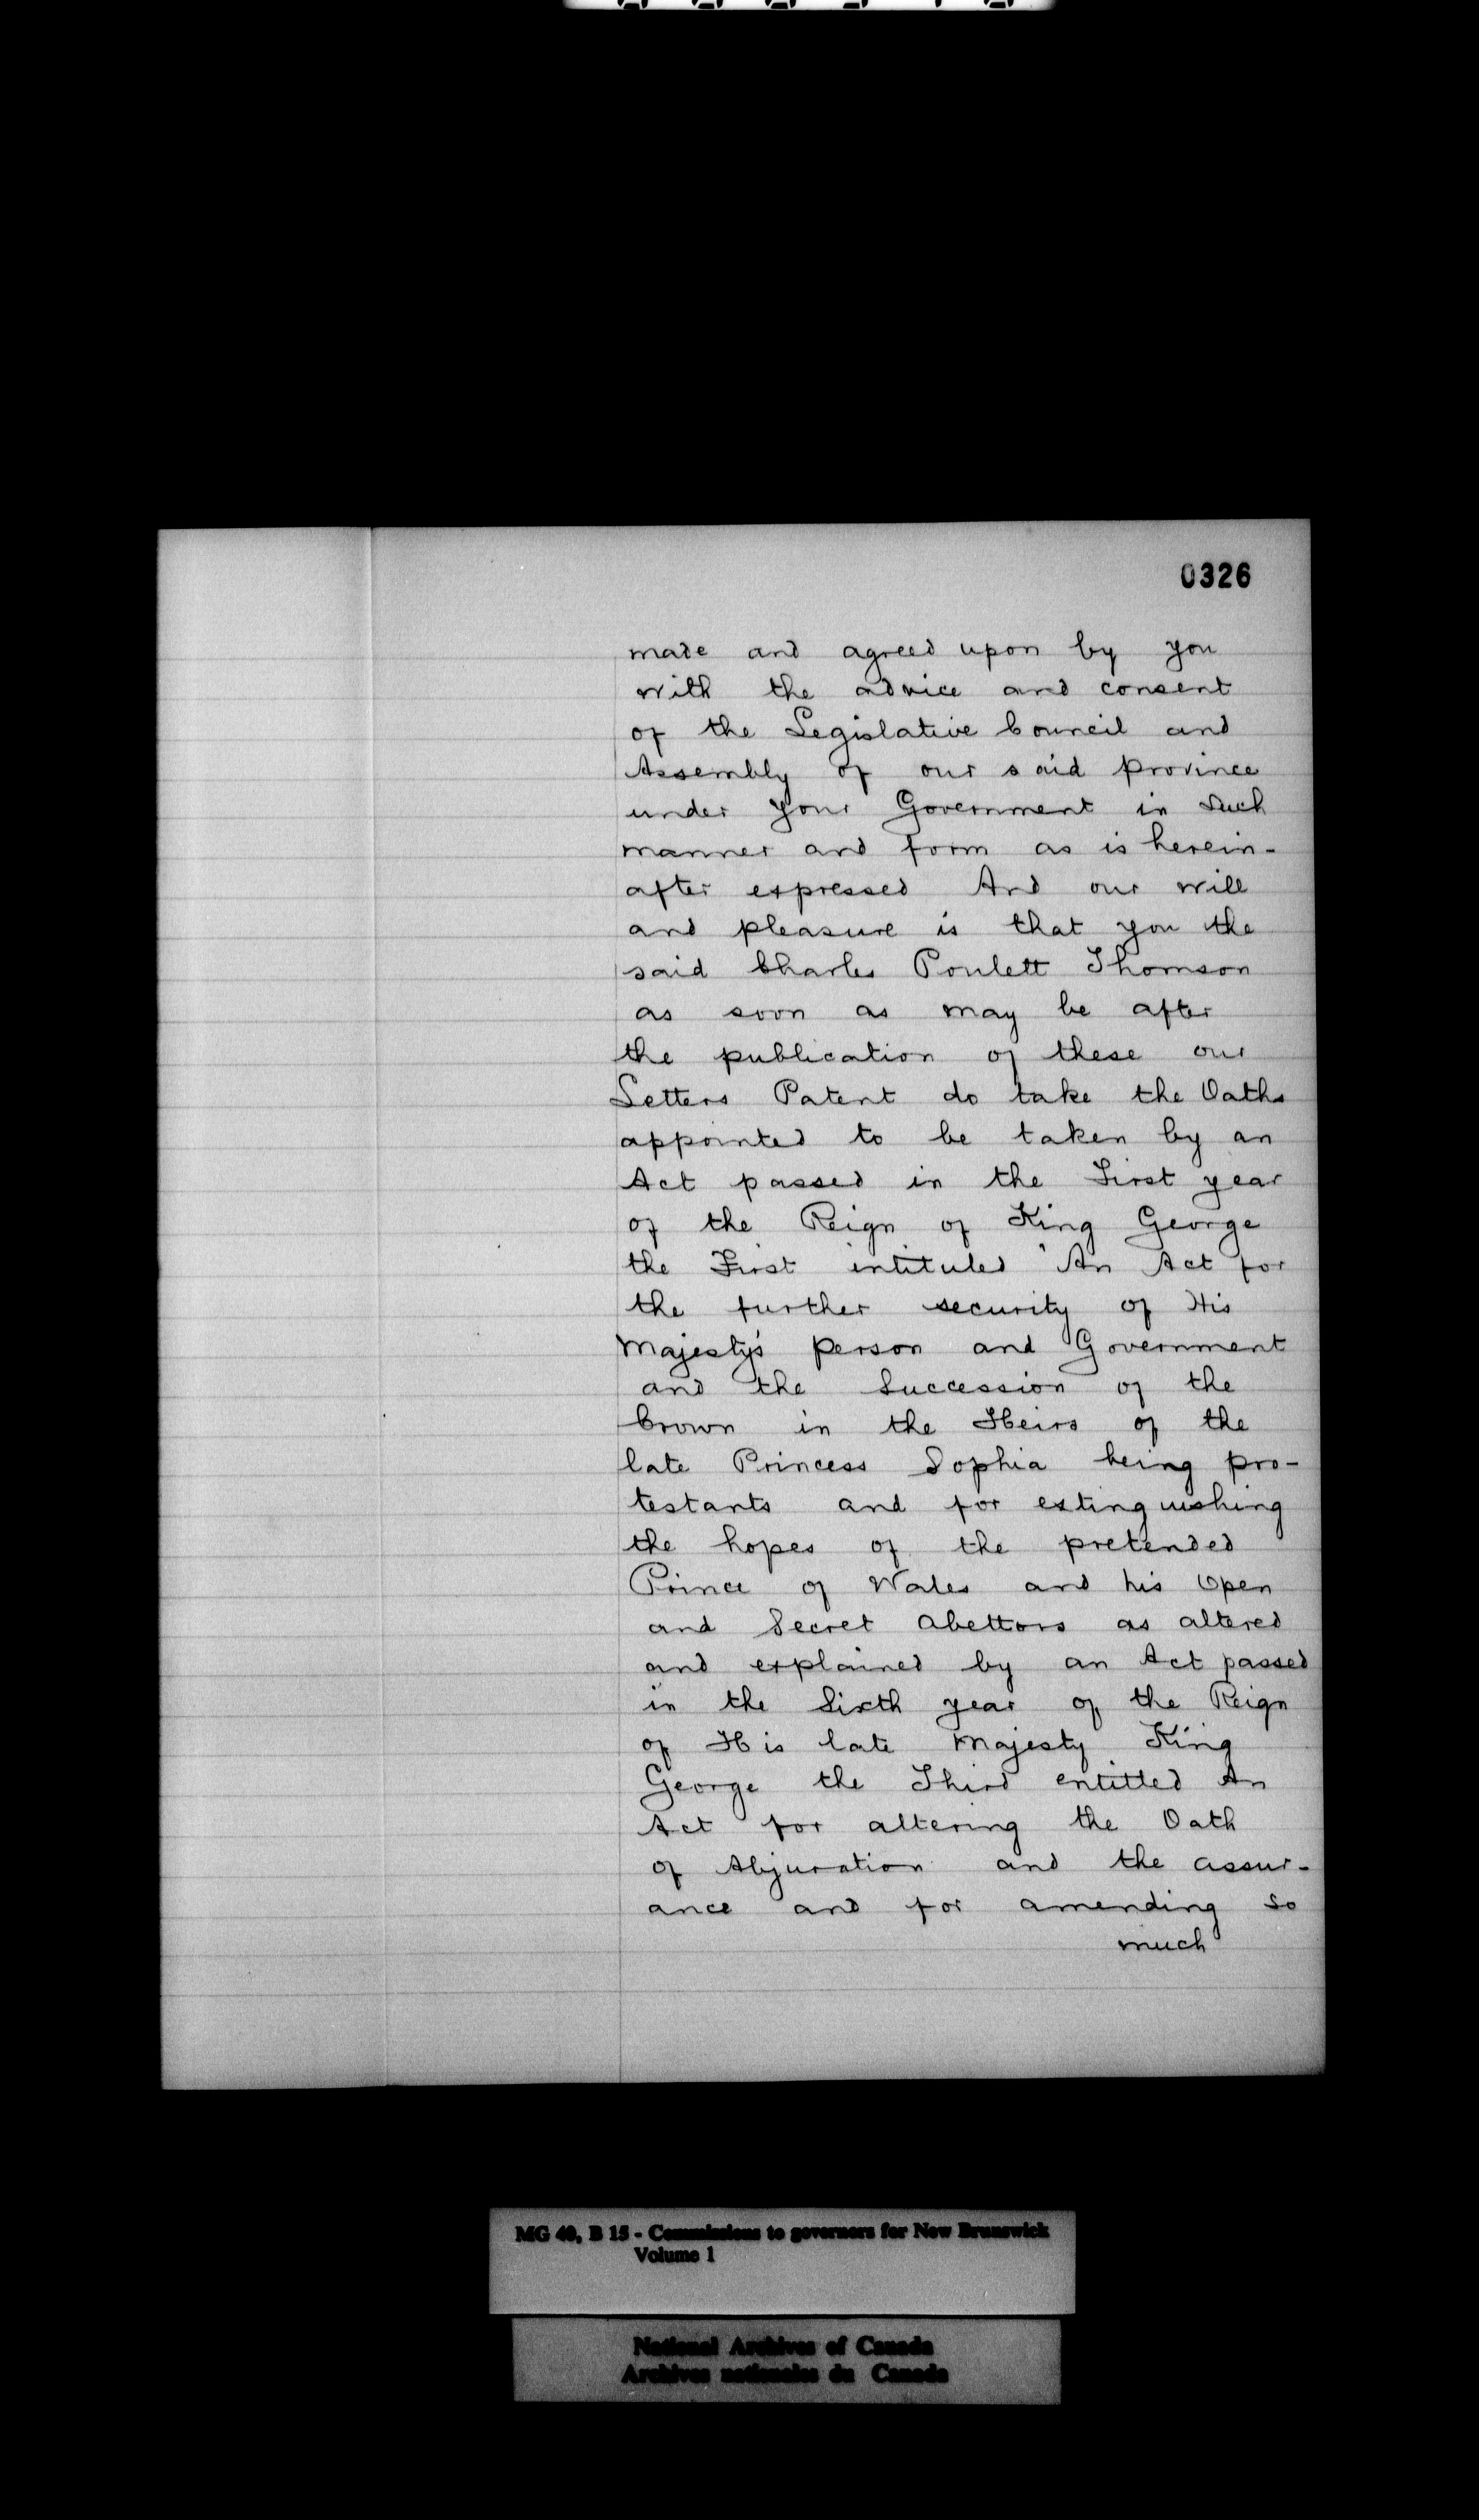 0326
made and agreed upon by you
with the advice and consent
of the Legislative Council and
Assembly of our said province
under your Government in such
manner and form as is herein-
after expressed And our will
and pleasure is that you the
said Charles Poulett Thomson
as soon as may be after
the publication of these our
Letters Patent do take the Oaths
appointed to be taken by an
Act passed in the First year
of the Reign of King George
the First intituled "An Act for
the further security of His
Majesty's person and Government
and the Succession of the
Crown in the Heirs of the
late Princess Sophia being pro-
testants and for extinguishing
the hopes of the pretended
Prince of Wales and his Open
and Secret Abettors as altered
and explained by an Act passed
in the Sixth year of the Reign
of His late Majesty King
George the Third entitled An
Act for altering the Oath
of Abjuration and the assur-
ance and for amending so
much
MG 40, B 15 - Commissions to governors for New Brunswick
Volume 1
National Archives of Canada
Archives nationales du Canada